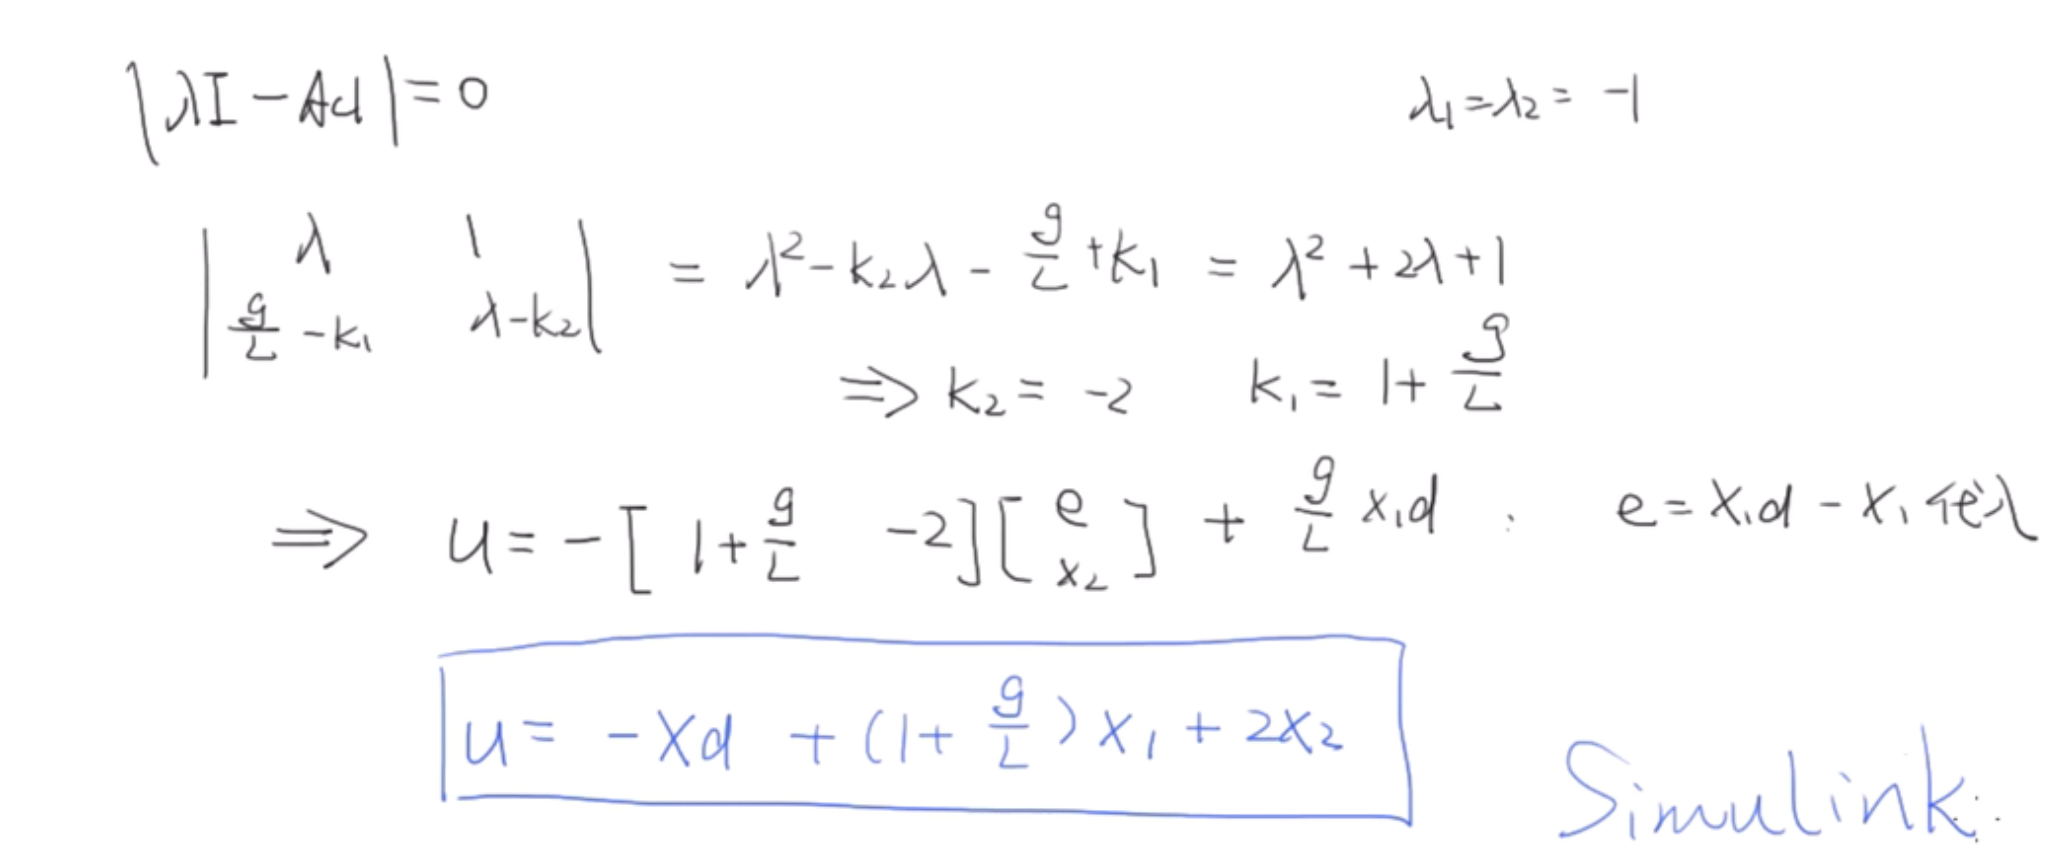 |λI - Acl| = 0    λ₁ = λ₂ = -1
|λ    1; g/L - k₁    λ - k₂| = λ² - k₂λ - g/L + k₁ = λ² + 2λ + 1
⇒ k₂ = -2    k₁ = 1 + g/L
⇒ u = -[1 + g/L    -2][e; x₂] + g/L x₁d :    e = x₁d - x₁ 代入
u = -xd + (1 + g/L) x₁ + 2x₂
Simulink: